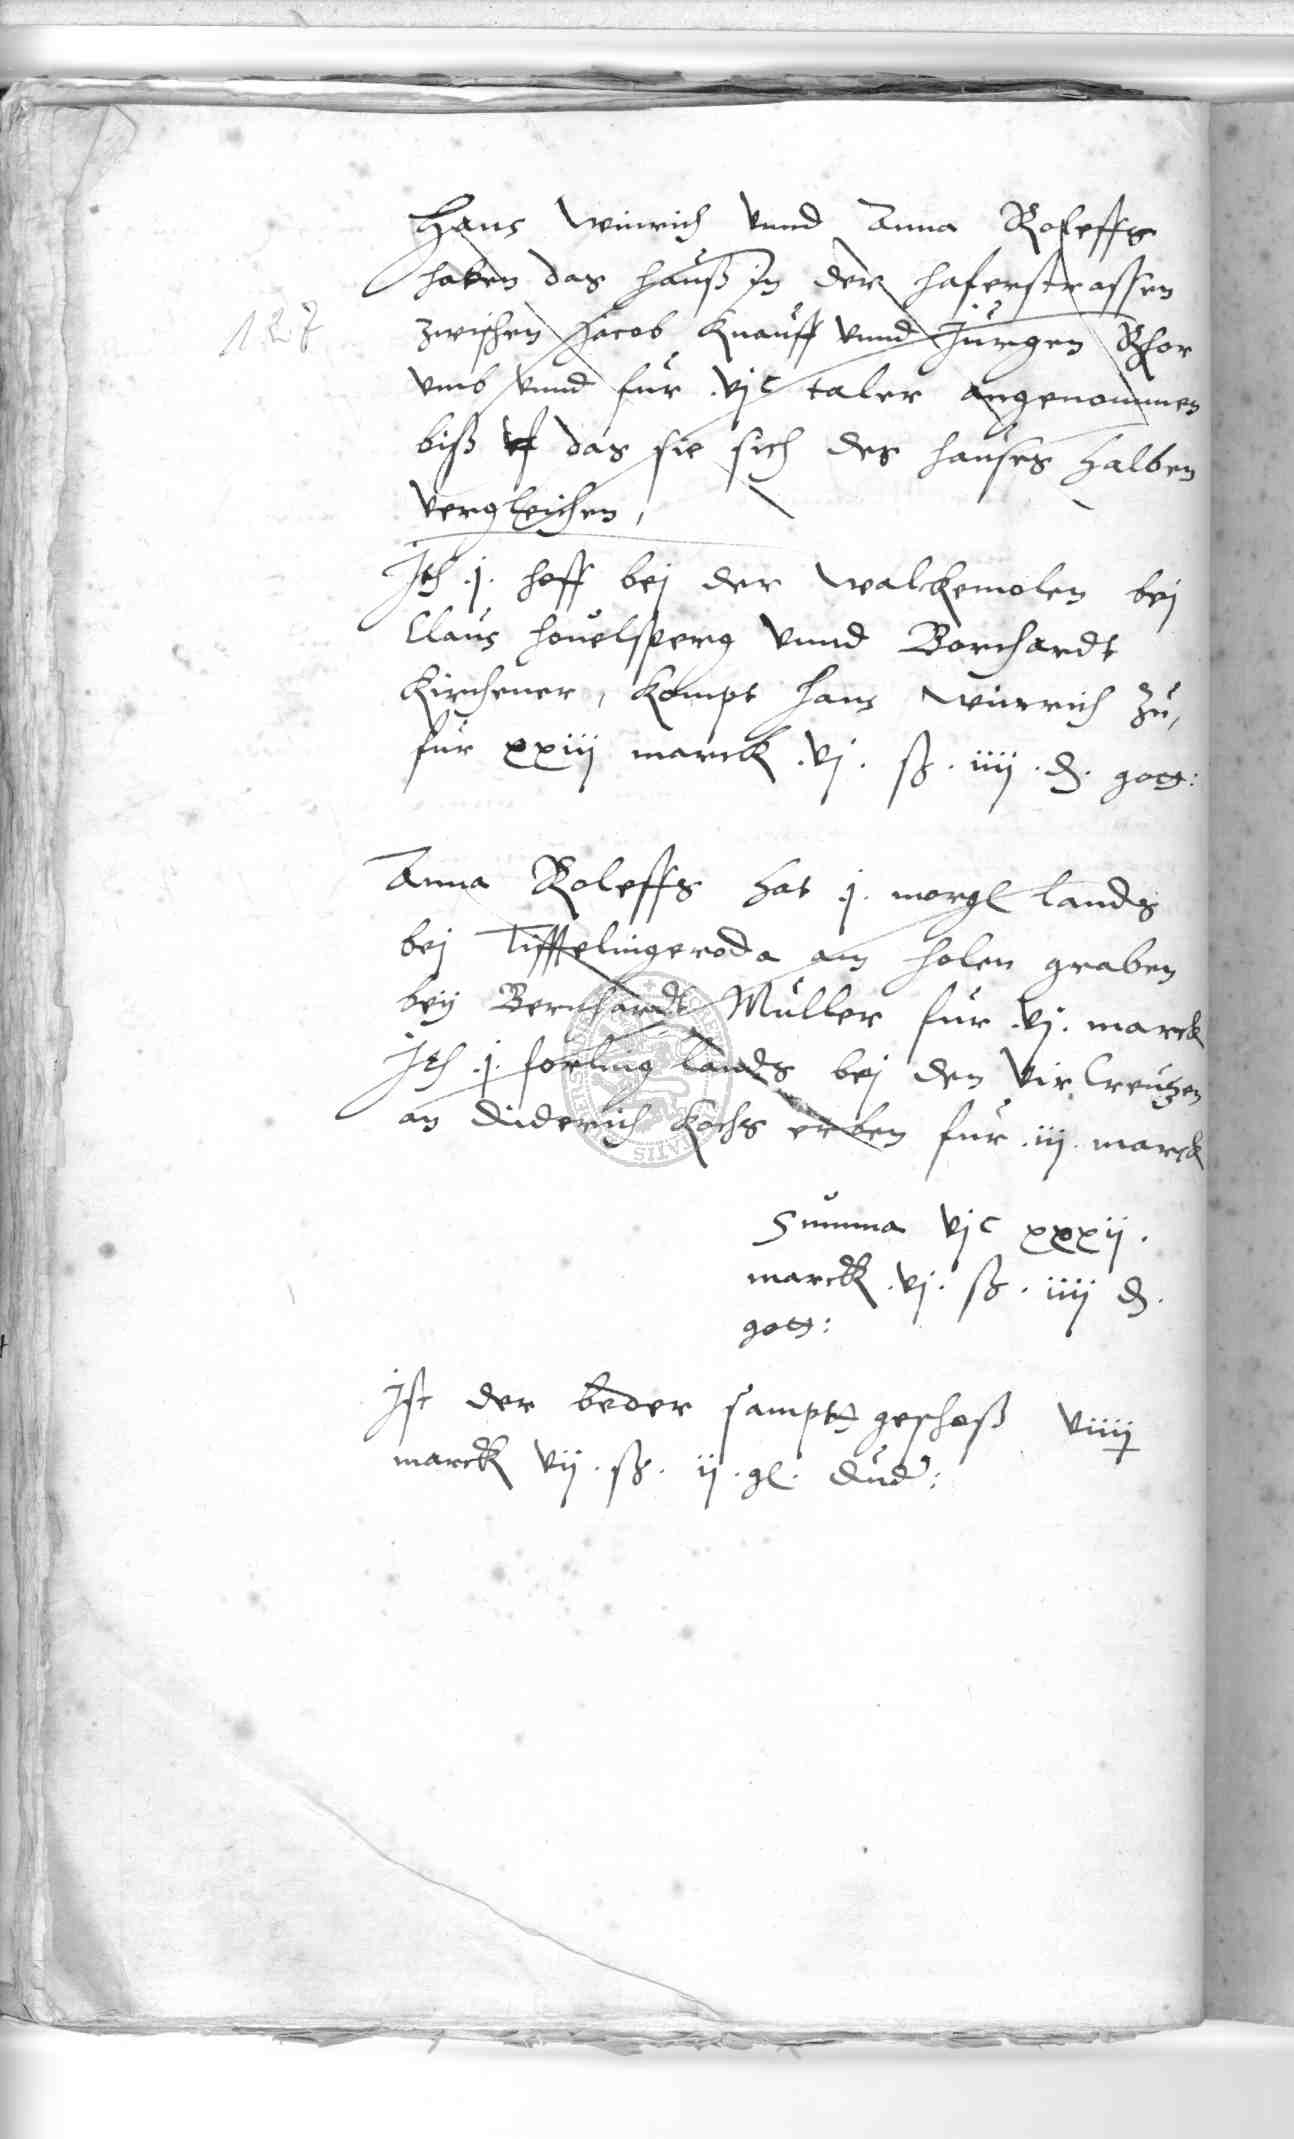 Hans Winrich vnnd Anna Roleffs
haben das hauß in der haferstrassen
zwischen Jacob Knauff vnnd Jürgen Rhor
vmb vnnd für .vjc taler angenommen
biß vf das sie sich des hauses halben
vergleichen,
127
Jth .j. hoff bej der Walckemolen bej
Claus Houelsperg vnnd Borchardt
Kirchener, kompt Hans Winrich zu,
für xxiij marck .vj. ß. iiij .d. gott:
Anna Roleffs hat .j. morgl lands
bej Tifftelingeroda am holen graben
bey Bernhardt Müller für .vj. marck
Jth .j. forling lands bej den vir Creutzen
an Diderich Kochs erben für .iij. marck
Summa vjc xxxij.
marck .vj. ß. iiij d.
gott:
Jst der beder sampt geschoß viiij
marck vij. ß. ij. gl. dud: